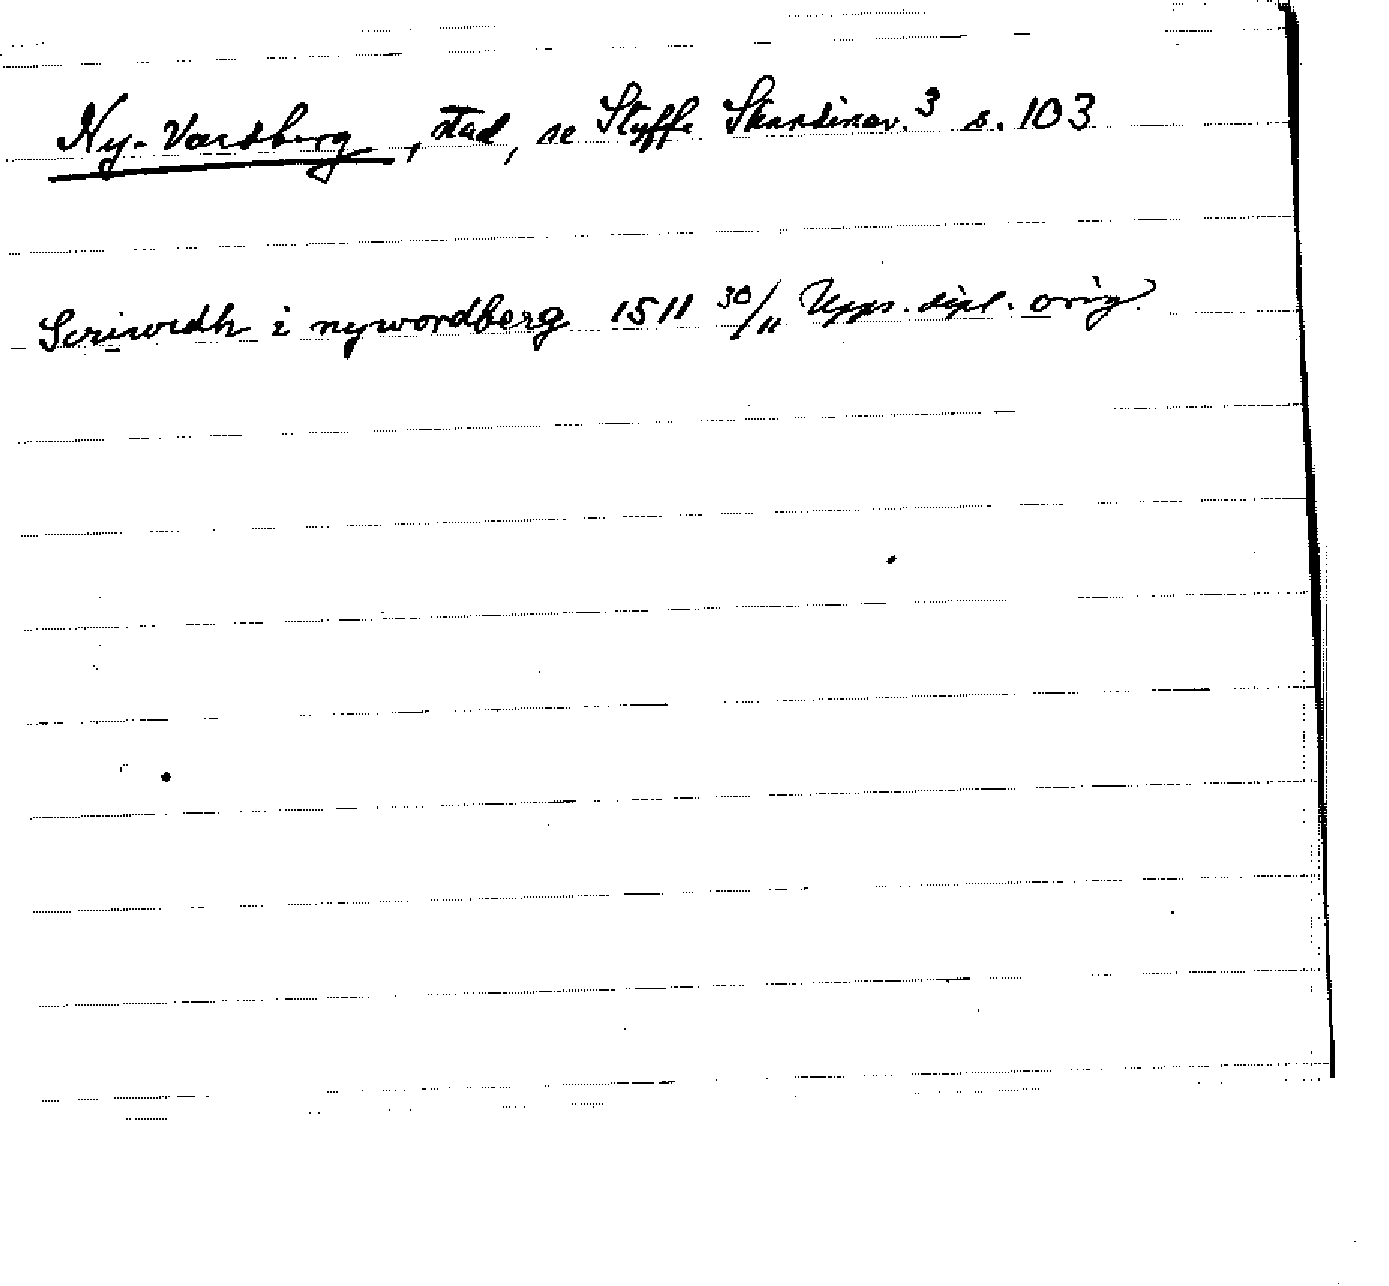 Ny-Vardberg, stad, se Styffe Skandinav.³ s. 103
Scriwedh i nywordberg 1511 30/11 Upps. dipl. orig.